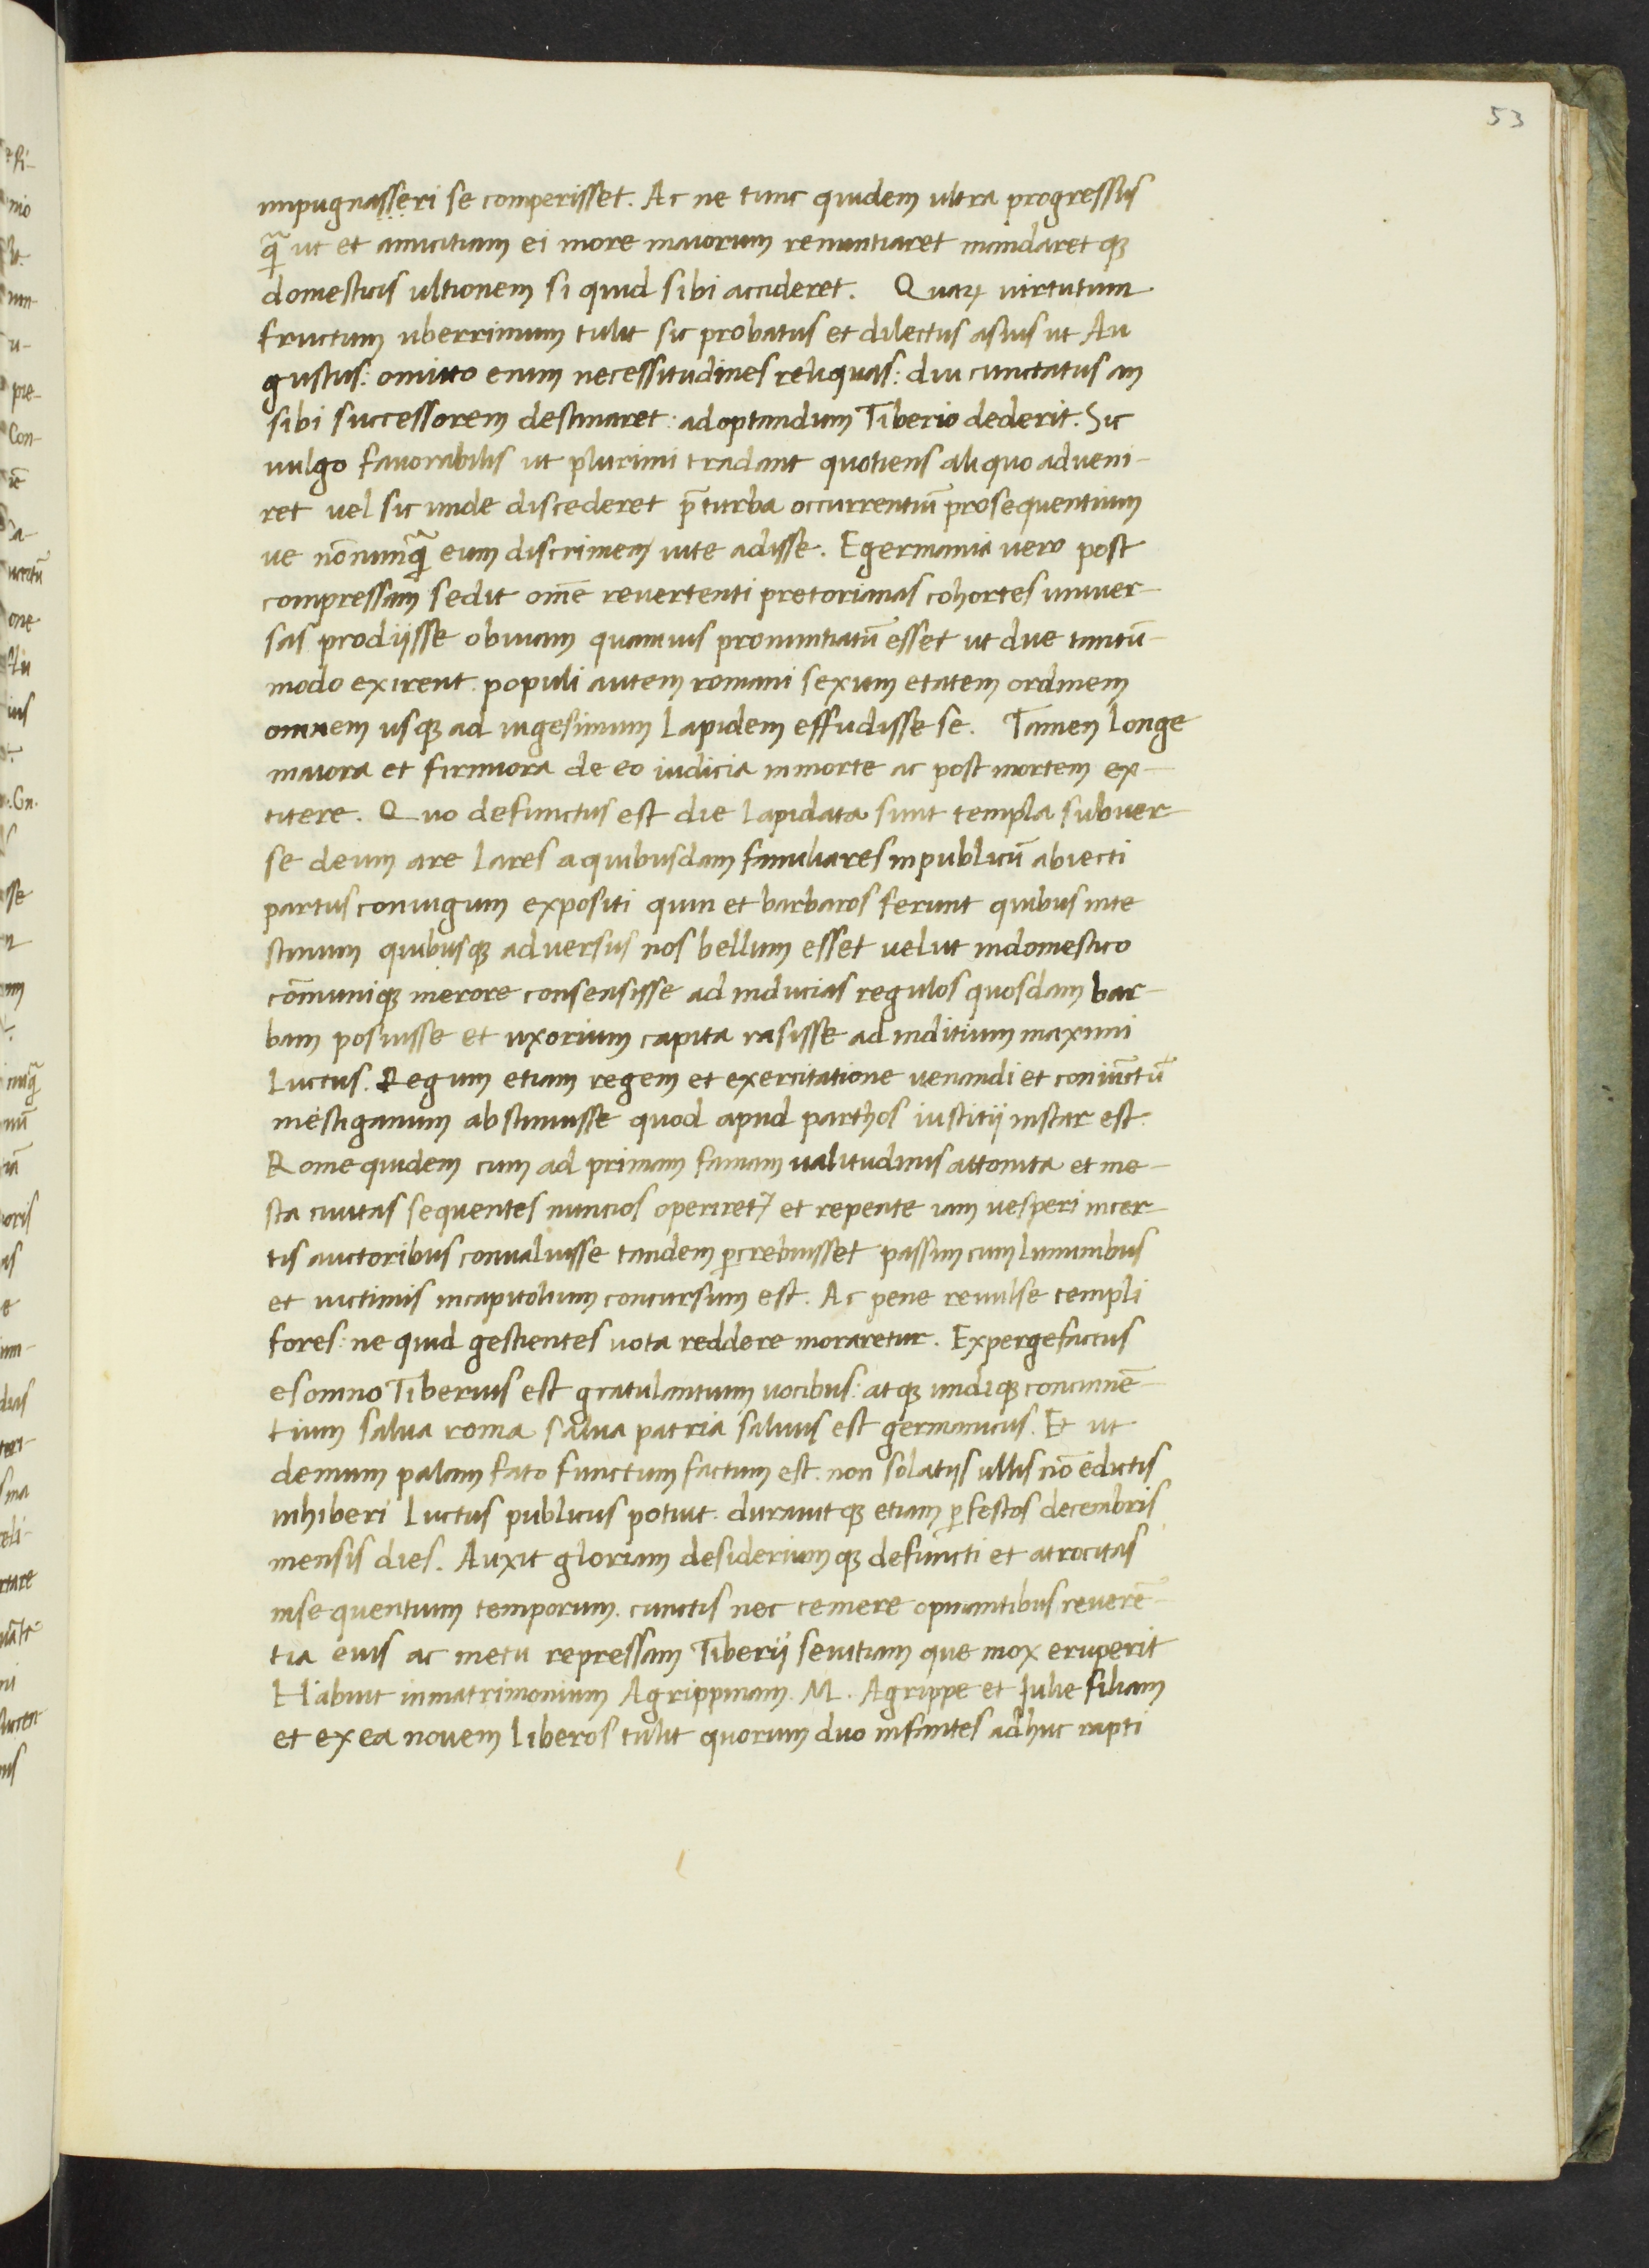 53
impugnasseri se comperisset. Ac ne tunc quidem ultra progressus
q̃ ut et amicitiam ei more maiorum renuntiaret mandaret qꝫ
domesticis ultionem si quid sibi accideret. Quaꝝ uirtutum
fructum uberrimum tulit sic probatus et dilectus asuis ut Au
gustus: omitto enim necessitudines reliquas: diu cunctatus an
sibi successorem destinaret: adoptandum Tiberio dederit. Sic
uulgo fauorabilis ut plurimi tradant quotiens aliquo adueni-
ret uel sicunde discederet p̃ turba occurrentiū prosequentium
ue nōnunq̃ eum discrimen uite adisse. Egermania uero post
compressam sedit om̄e reuertenti pretorianas cohortes uniuer-
sas prodijsse obuiam quamuis pronuntiatū esset ut due tantū-
modo exirent. populi autem romani sexum etatem ordinem
omnem usqꝫ ad uigesimum lapidem effudisse se. Tamen longe
maiora et firmiora de eo iudicia inmorte ac post mortem ex-
titere. Quo defunctus est die lapidata sunt templa subuer
se deum are lares aquibusdam familiares inpublicū abiecti
partus coniugum expositi quin et barbaros ferunt quibus inte
stinum quibusqꝫ aduersus nos bellum esset uelut indomestico
cōmuniqꝫ merore consensisse ad inducias regulos quosdam bar-
bam posuisse et uxorium capita rasisse ad inditium maximi
Luctus. Regum etiam regem et exercitatione uenandi et coniūctū
mestiganum abstinuisse quod apud parthos iustitij instar est.
Rome quidem cum ad primam famam ualitudinis attonita et me-
sta ciuitas sequentes nuncios operiret² et repente iam uesperi incer-
tis auctoribus conualuisse tandem ꝑcrebuisset passim cum luminibus
et uictimis incapitolium concursum est. Ac pene reuulse templi
fores: ne quid gestientes uota reddere moraretur. Expergefactus
esomno Tiberius est gratulantium uocibus: atqꝫ undiqꝫ concinnē-
tium salua roma salua patria saluus est germanicus. Et ut
demum palam fato functum factum est. non solatijs ullis nō edictis
inhiberi luctus publicus potuit. durauitqꝫ etiam ꝑ festos decembris
mensis dies. Auxit gloriam desideriumqꝫ defuncti et atrocitas
insequentium temporum. cunctis nec temere opinantibus reuerē-
tia eius ac metu repressam Tiberij seuitiam que mox eruperit
Habuit inmatrimonium Agrippinam. M. Agrippe et Julie filiam
et ex ea nouem liberos tulit quorum duo infantes adhuc rapti